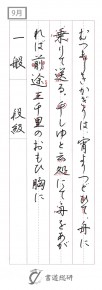 9月
むつましきかぎりは宵よりつどひて舟に
乗りて送る。千しゆと云処にて舟をあが
れば前途三千里のおもひ胸に
一般 段級
書道総研